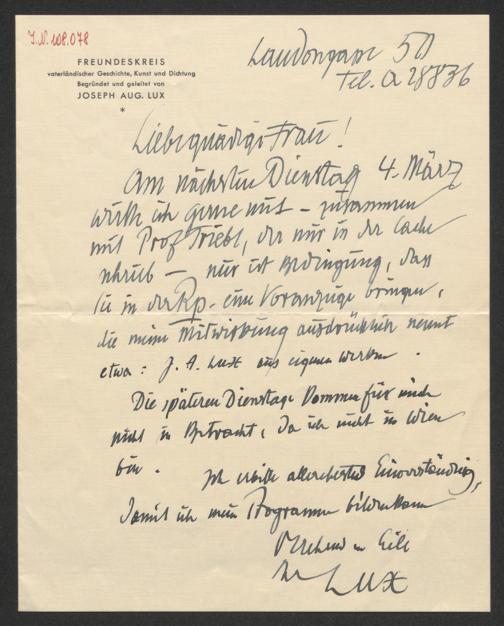 J.N. 108.078
FREUNDESKREIS
vaterländischer Geschichte, Kunst und Dichtung
Begründet und geleitet von
JOSEPH AUG. LUX
*
Laudongasse 50
Tel. A 28836
Liebe gnädige Frau!
Am nächsten Dienstag 4. März
wirke ich gerne mit – zusammen
mit Prof. der mir in der Sache
schrieb – nur ist Bedingung, dass
Sie in der Rp. eine Voranzeige bringen,
die meine Mitwirkung ausdrücklich nennt
etwa: J. A. Lux aus eigenen Werken.
Die späteren Dienstage kommen für mich
nicht in Betracht, da ich nicht in Wien
bin.
Ich erbitte Einverständnis,
damit ich mein Programm bilden kann
in Eile
Ihr Lux